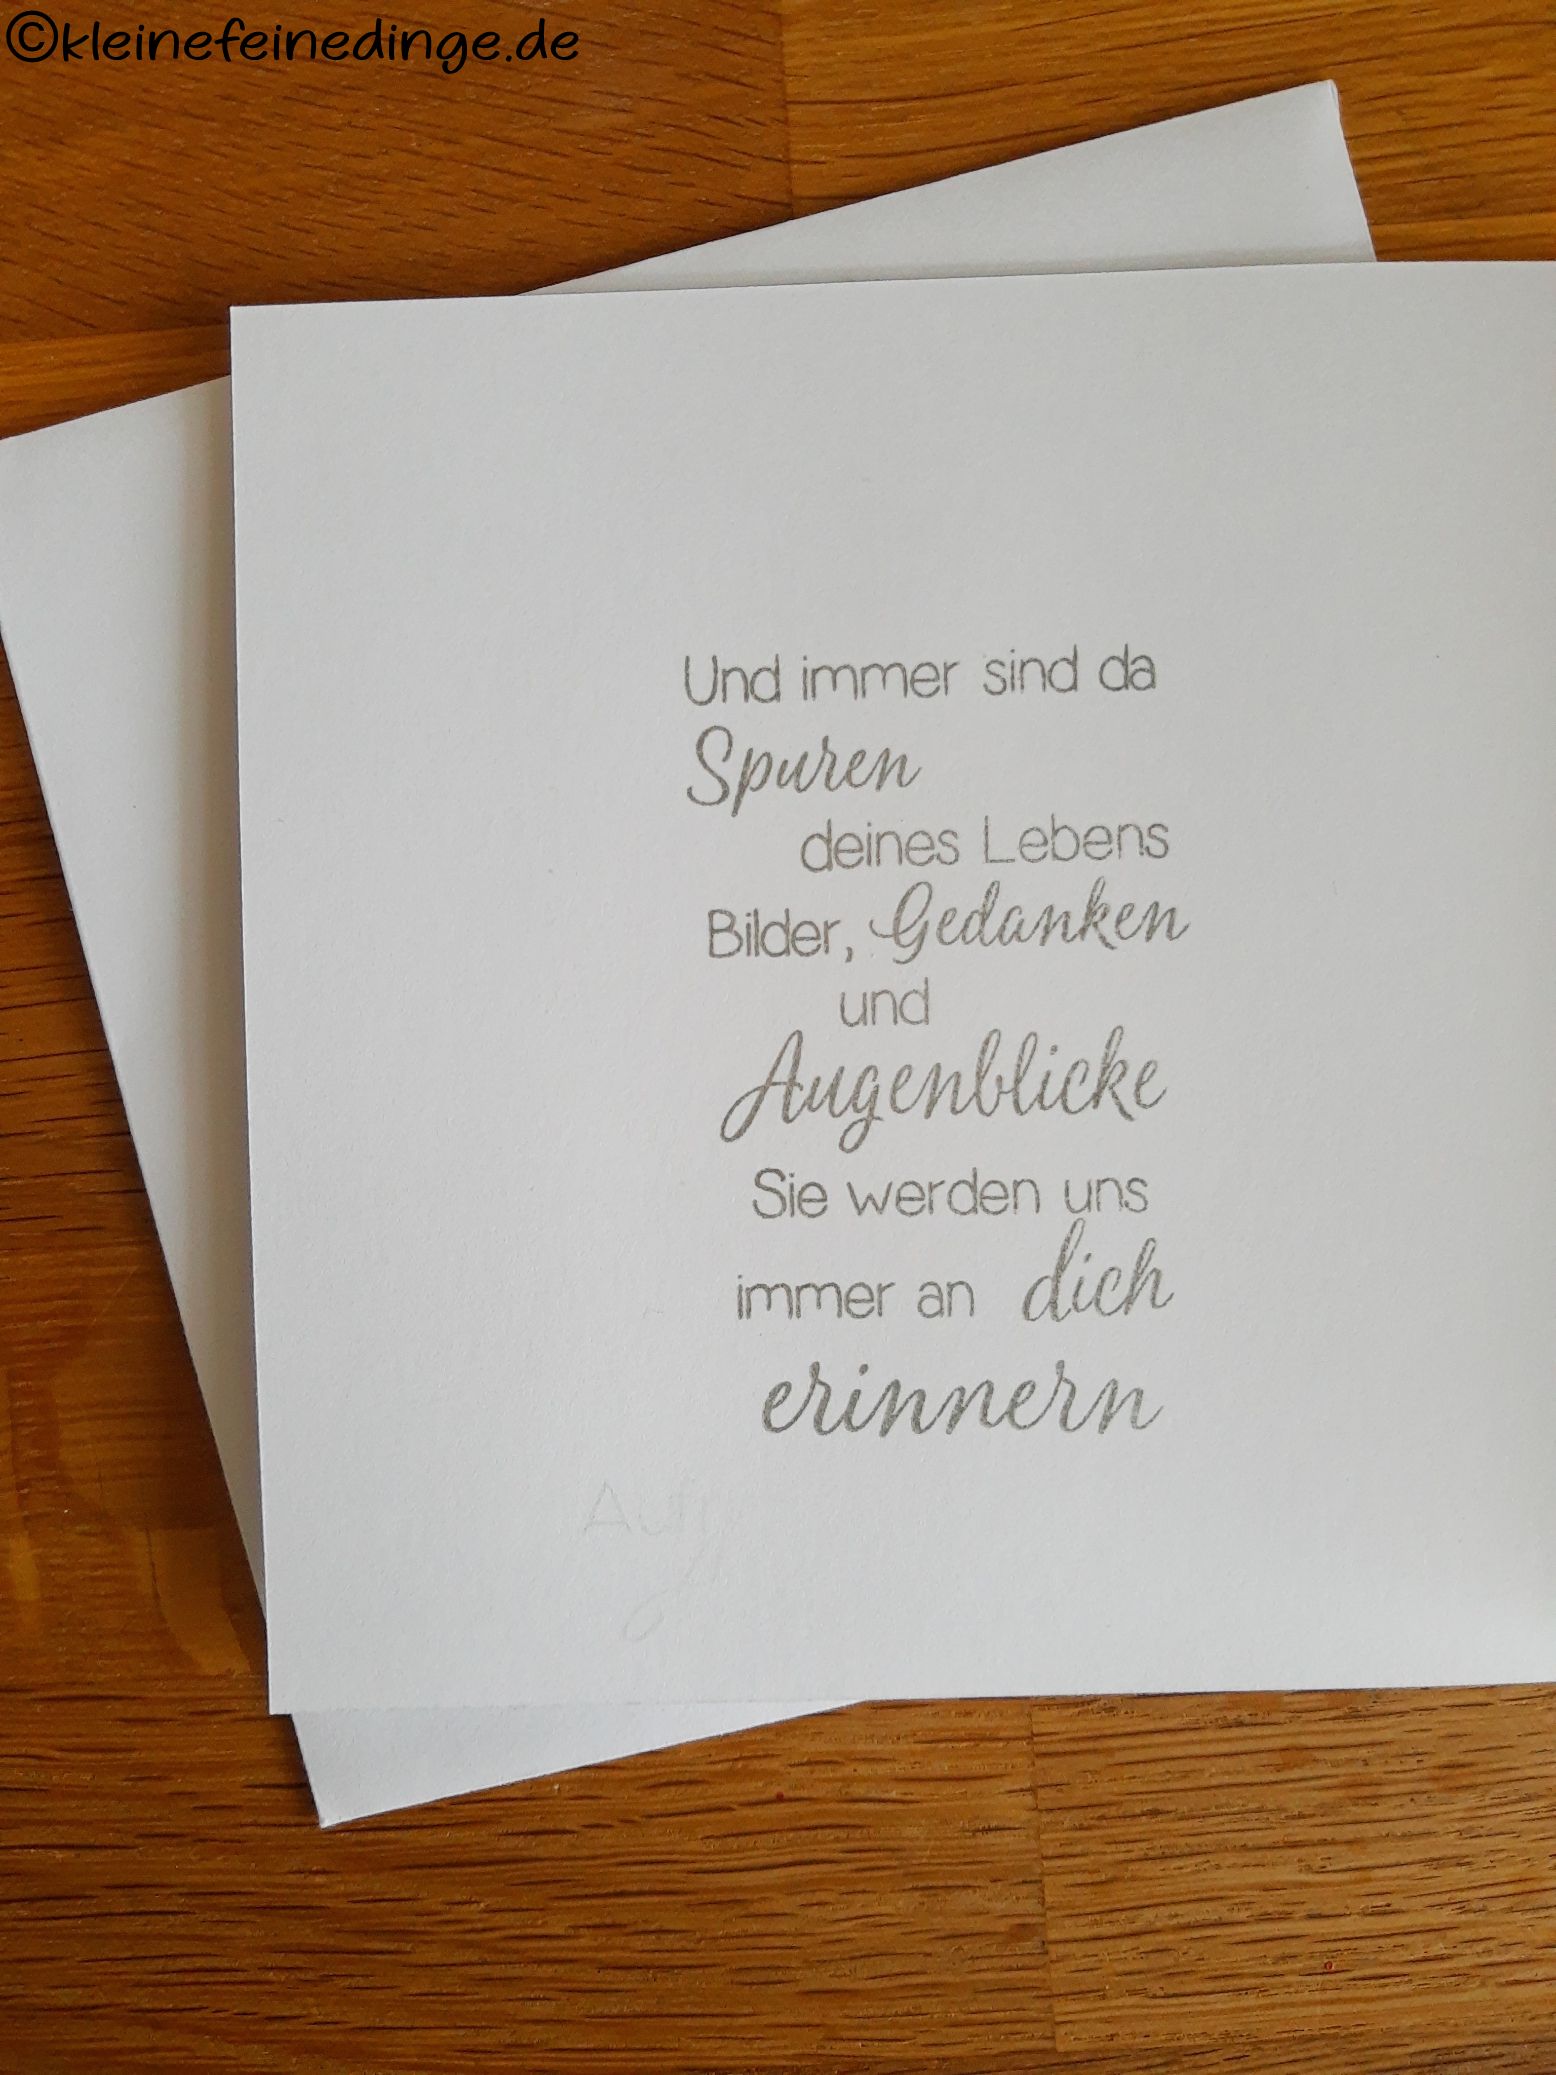 ©kleinefeinedinge.de
Und immer sind da
Spuren
deines Lebens
Bilder, Gedanken
und
Augenblicke
Sie werden uns
immer an dich
erinnern